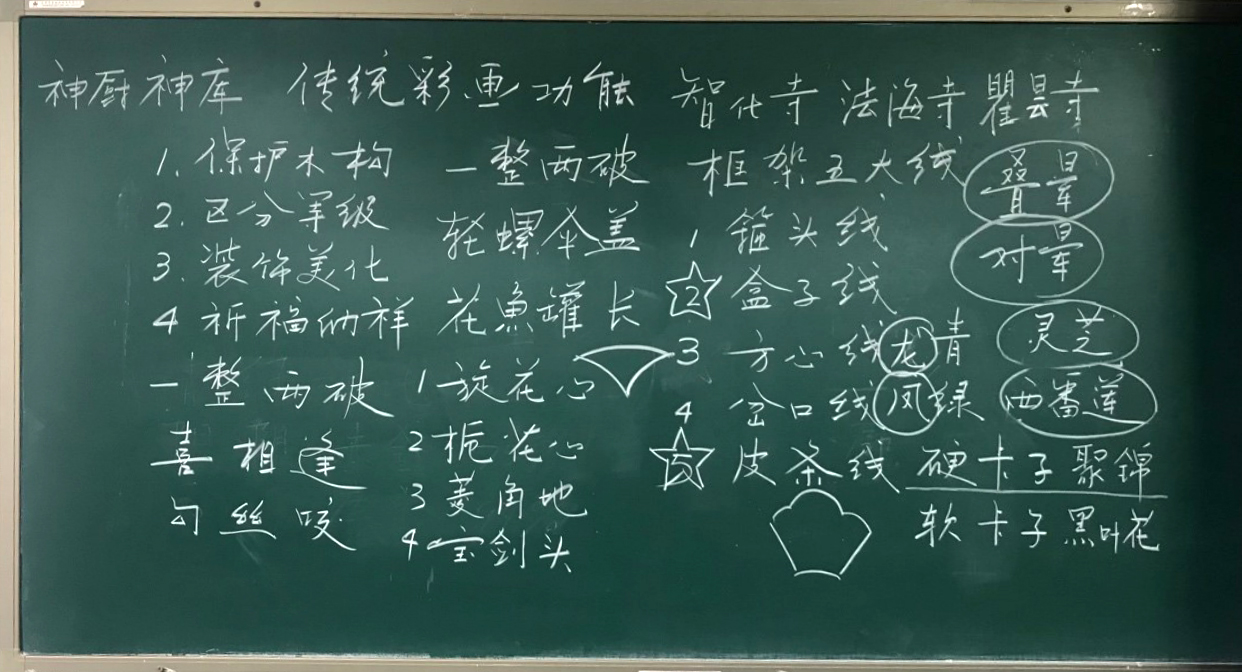 神厨神库 传统彩画功能 智化寺 法海寺 瞿昙寺
1. 保护木构
2. 区分等级
3. 装饰美化
4 祈福纳祥
一整两破
喜相逢
勾丝咬
一整两破
轮螺伞盖
花鱼罐长
1 旋花心
2 栀花心
3 菱角地
4 宝剑头
框架五大线
1 箍头线
2 盒子线
3 方心线 龙青
4 岔口线 凤绿
5 皮条线
叠晕
对晕
灵芝
西番莲
硬卡子聚錦
软卡子黑叶花